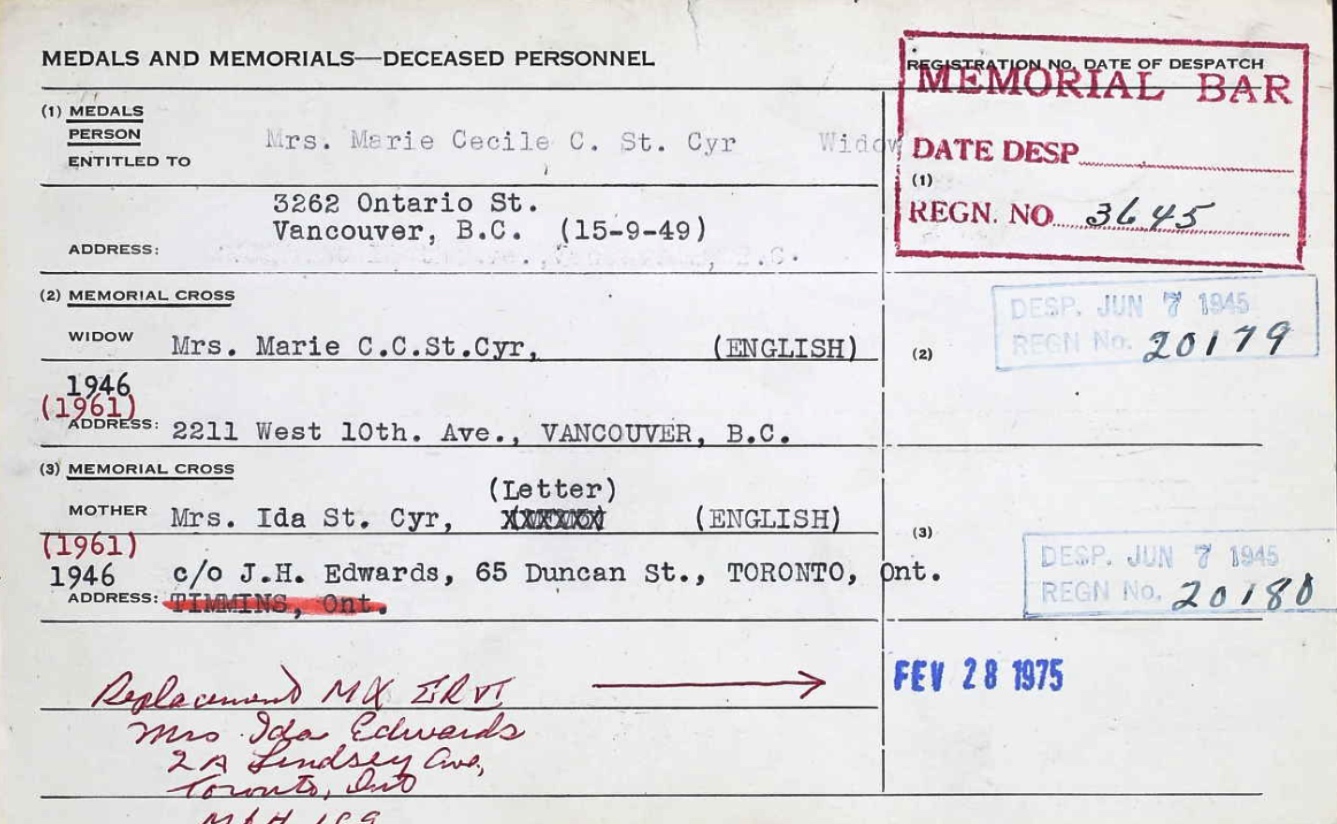 MEDALS AND MEMORIALS—DECEASED PERSONNEL
REGISTRATION NO. DATE OF DESPATCH
MEMORIAL BAR
DATE DESP
(1)
REGN. NO 3645
(1) MEDALS
PERSON
ENTITLED TO
Mrs. Marie Cecile C. St. Cyr Widow
3262 Ontario St.
Vancouver, B.C. (15-9-49)
ADDRESS:
(2) MEMORIAL CROSS
WIDOW Mrs. Marie C.C.St.Cyr, (ENGLISH)
(2)
DESP. JUN 7 1945
REGN No. 20179
1946
(1961)
ADDRESS: 2211 West 10th. Ave., VANCOUVER, B.C.
(3) MEMORIAL CROSS
(Letter)
MOTHER Mrs. Ida St. Cyr, (ENGLISH)
(3)
(1961)
1946 c/o J.H. Edwards, 65 Duncan St., TORONTO, Ont.
ADDRESS: TIMMINS, Ont.
DESP. JUN 7 1945
REGN No. 20180
Replacement MX
FEV 28 1975
Mrs Ida Edwards
2A Lindsey Ave,
Toronto, Ont